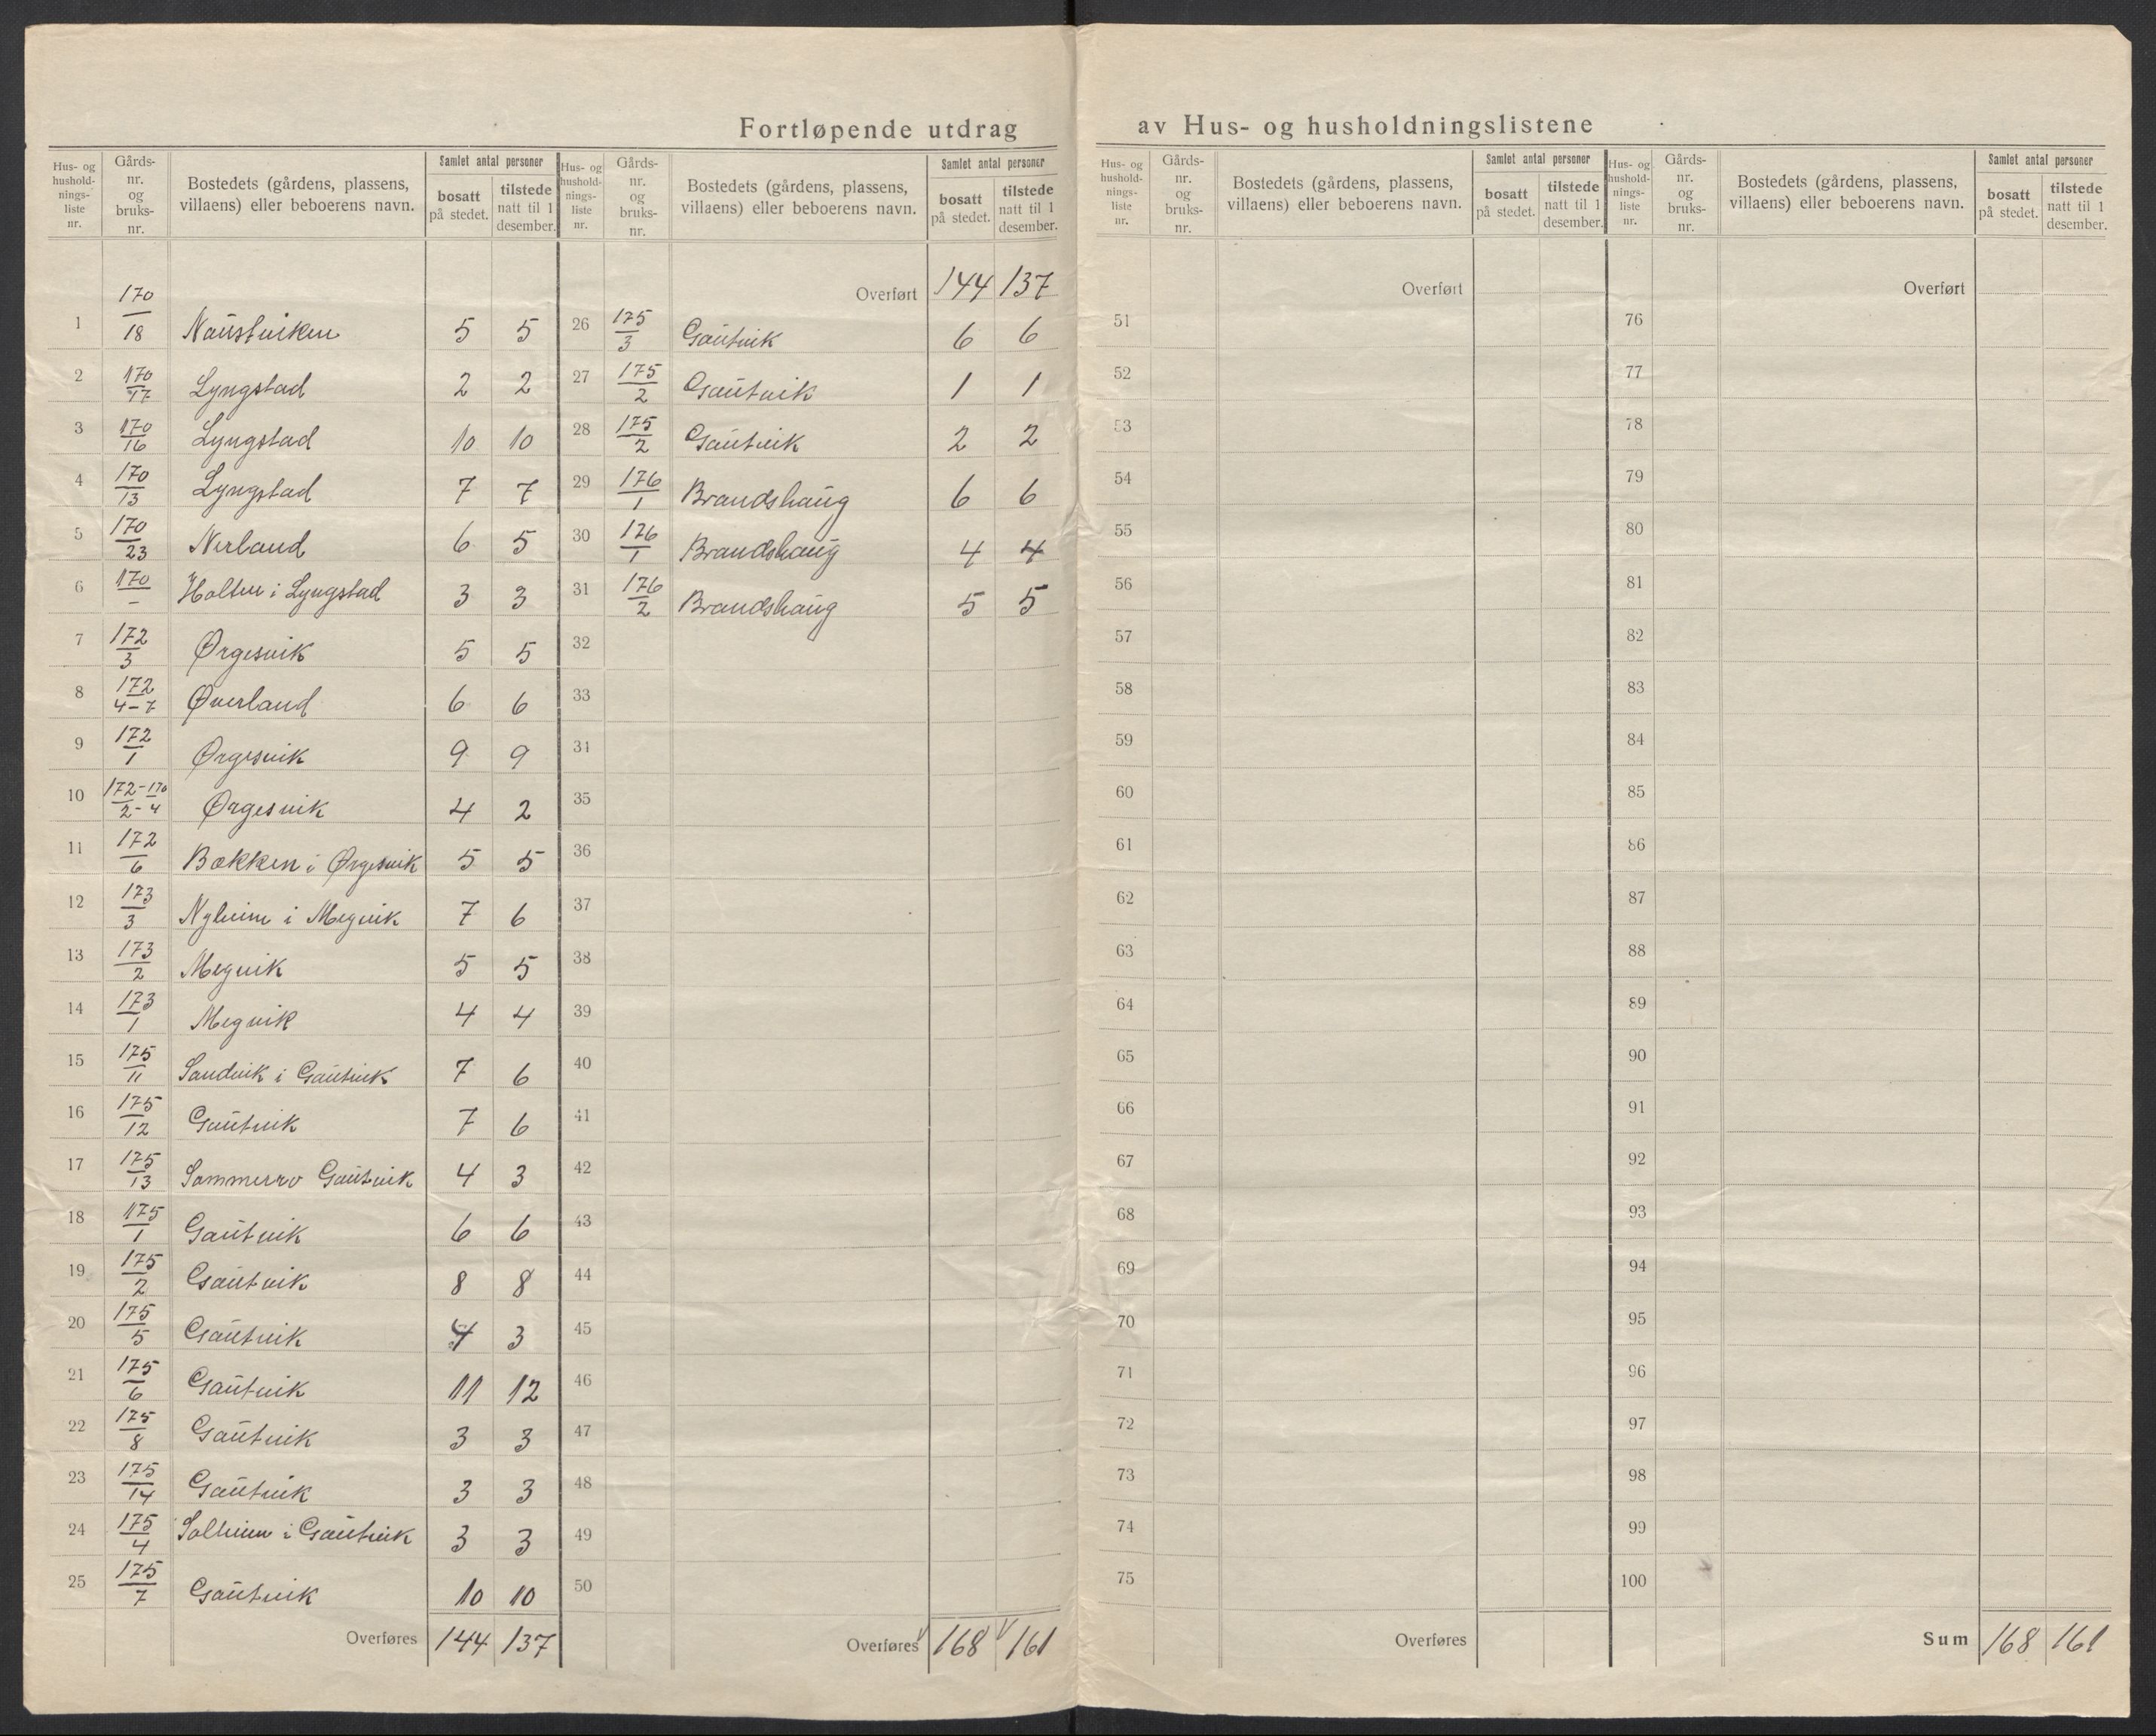 Fortløpende utdrag av Hus- og husholdningslistene
Hus- og husholdnings-liste nr. | Gårds-nr. og bruks-nr. | Bostedets (gårdens, plassens, villaens) eller beboerens navn. | Samlet antal personer | bosatt på stedet. | tilstede natt til 1 desember.
1 | 170/18 | Naustviken | 5 | 5
2 | 170/17 | Lyngstad | 2 | 2
3 | 170/16 | Lyngstad | 10 | 10
4 | 170/13 | Lyngstad | 7 | 7
5 | 170/23 | Nerland | 6 | 5
6 | 170/- | Holten i Lyngstad | 3 | 3
7 | 172/3 | Ørgesvik | 5 | 5
8 | 172/4-7 | Øverland | 6 | 6
9 | 172/1 | Ørgesvik | 9 | 9
10 | 172-170/2-4 | Ørgesvik | 4 | 2
11 | 172/6 | Bakken i Ørgesvik | 5 | 5
12 | 173/3 | Nyheim i Megvik | 7 | 6
13 | 173/2 | Megvik | 5 | 5
14 | 173/1 | Megvik | 4 | 4
15 | 175/11 | Sandvik i Gautvik | 7 | 6
16 | 175/12 | Gautvik | 7 | 6
17 | 175/13 | Sommerro Gautvik | 4 | 3
18 | 175/1 | Gautvik | 6 | 6
19 | 175/2 | Gautvik | 8 | 8
20 | 175/5 | Gautvik | 4 | 3
21 | 175/6 | Gautvik | 11 | 12
22 | 175/8 | Gautvik | 3 | 3
23 | 175/14 | Gautvik | 3 | 3
24 | 175/4 | Solheim i Gautvik | 3 | 3
25 | 175/7 | Gautvik | 10 | 10
Overføres 144 137
Hus- og husholdnings-liste nr. | Gårds-nr. og bruks-nr. | Bostedets (gårdens, plassens, villaens) eller beboerens navn. | Samlet antal personer | bosatt på stedet. | tilstede natt til 1 desember.
Overført 144 137
26 | 175/3 | Gautvik | 6 | 6
27 | 175/2 | Gautvik | 1 | 1
28 | 175/2 | Gautvik | 2 | 2
29 | 176/1 | Brandshaug | 6 | 6
30 | 176/1 | Brandshaug | 4 | 4
31 | 176/2 | Brandshaug | 5 | 5
32
33
34
35
36
37
38
39
40
41
42
43
44
45
46
47
48
49
50
Overføres 168 161
Hus- og husholdnings-liste nr. | Gårds-nr. og bruks-nr. | Bostedets (gårdens, plassens, villaens) eller beboerens navn. | Samlet antal personer | bosatt på stedet. | tilstede natt til 1 desember.
Overført
51
52
53
54
55
56
57
58
59
60
61
62
63
64
65
66
67
68
69
70
71
72
73
74
75
Overføres
Hus- og husholdnings-liste nr. | Gårds-nr. og bruks-nr. | Bostedets (gårdens, plassens, villaens) eller beboerens navn. | Samlet antal personer | bosatt på stedet. | tilstede natt til 1 desember.
Overført
76
77
78
79
80
81
82
83
84
85
86
87
88
89
90
91
92
93
94
95
96
97
98
99
100
Sum 168 161